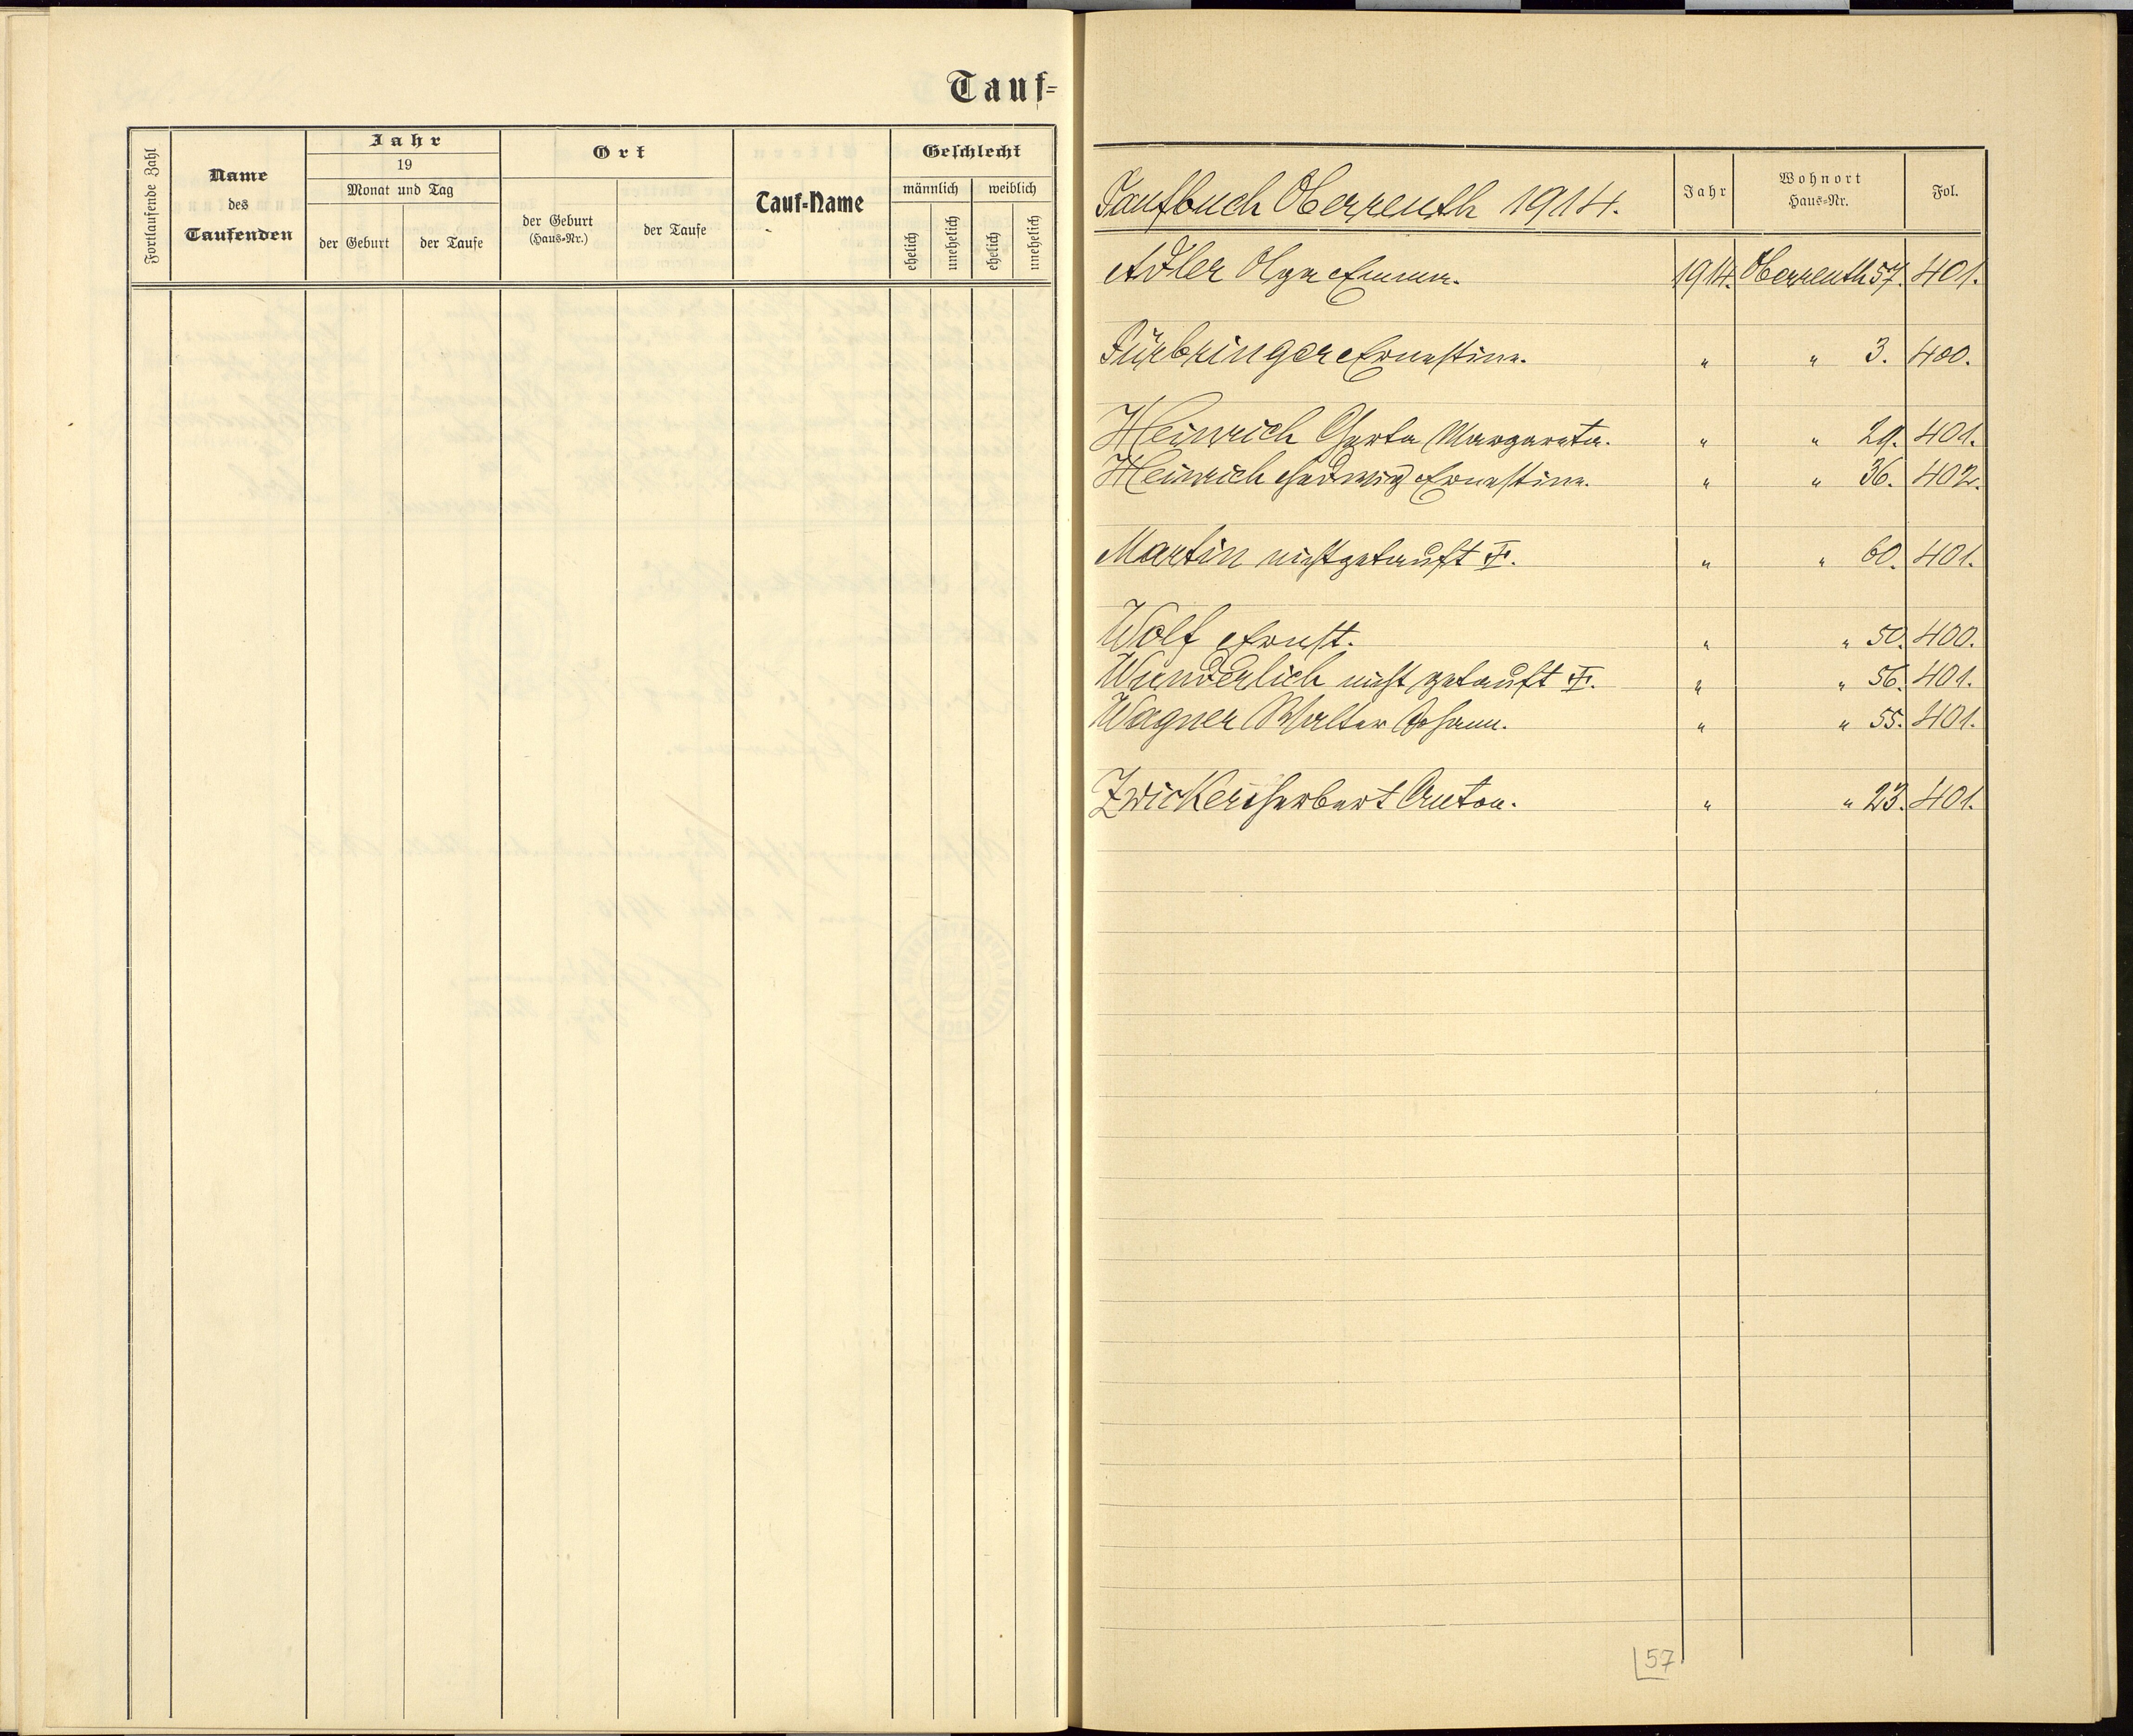 Tauf-
Fortlaufende Zahl
Name
des
Taufenden
Jahr
19
Monat und Tag
der Geburt
der Taufe
Ort
der Geburt
(Haus-Nr.)
der Taufe
Tauf-Name
Geschlecht
männlich
weiblich
ehelich
unehelich
ehelich
unehelich
Taufbuch Oberreuth 1914. Jahr Wohnort Haus-Nr. Fol.
Adler Olga Emma. 1914. Oberreuth 57. 401.
Fürbringer Ernestine. " " 3. 400.
Heinrich Herta Margareta. " " 29. 401.
Heinrich Hedwig Ernestine. " " 36. 402.
Martin nichtgetauft †. " " 60. 401.
Wolf Ernst. " " 50. 400.
Wunderlich nicht getauft †. " " 56. 401.
Wagner Walter Johann. " " 55. 401.
Zwicker Herbert Anton. " " 23. 401.
57